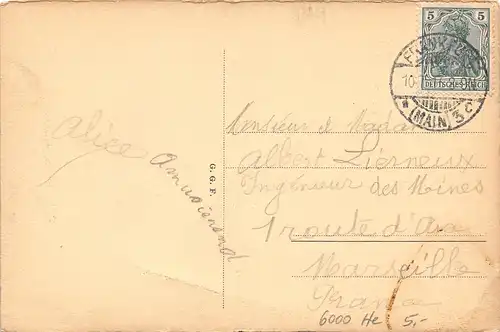 5 5
DEUTSCHES REICH
FRANKFURT
10
8-9N
* (MAIN) 3 c
Alice
G. G. F.
Monsieur et Madame
Albert Lierneux
Ingénieur des Mines
1 route d'Aix
Marseille
France
6000 He 5,-